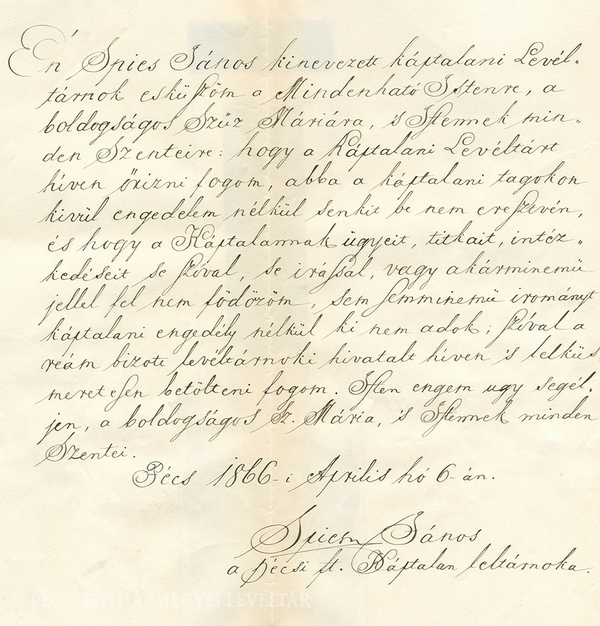 Én Spies János kinevezett káptalani Levél-
tárnok esküszöm a Mindenható Istenre, a
boldogságos Szűz Máriára, 's Istennek min-
den Szenteire: hogy a Káptalani Levéltárt
hiven őrizni fogom, abba a káptalani tagokon
kivül engedelem nélkül senkit be nem eresztvén,
és hogy a Káptalannak ügyeit, titkait, intéz-
kedéseit se szóval, se irással, vagy akárminemü
jellel fel nem födözöm, sem semminemü irományt
káptalani engedély nélkül ki nem adok; szóval a
reám bizott levéltárnoki hivatalt hiven 's lelkiis
meretesen betölteni fogom. Isten engem ugy segél-
jen, a boldogságos Sz. Mária, 's Istennek minden
Szentei.
Pécs 1866-i Április hó 6-án.
Spies János
a pécsi ft. Káptalan leltárnoka.
© PÉCSI EGYHÁZMEGYEI LEVÉLTÁR